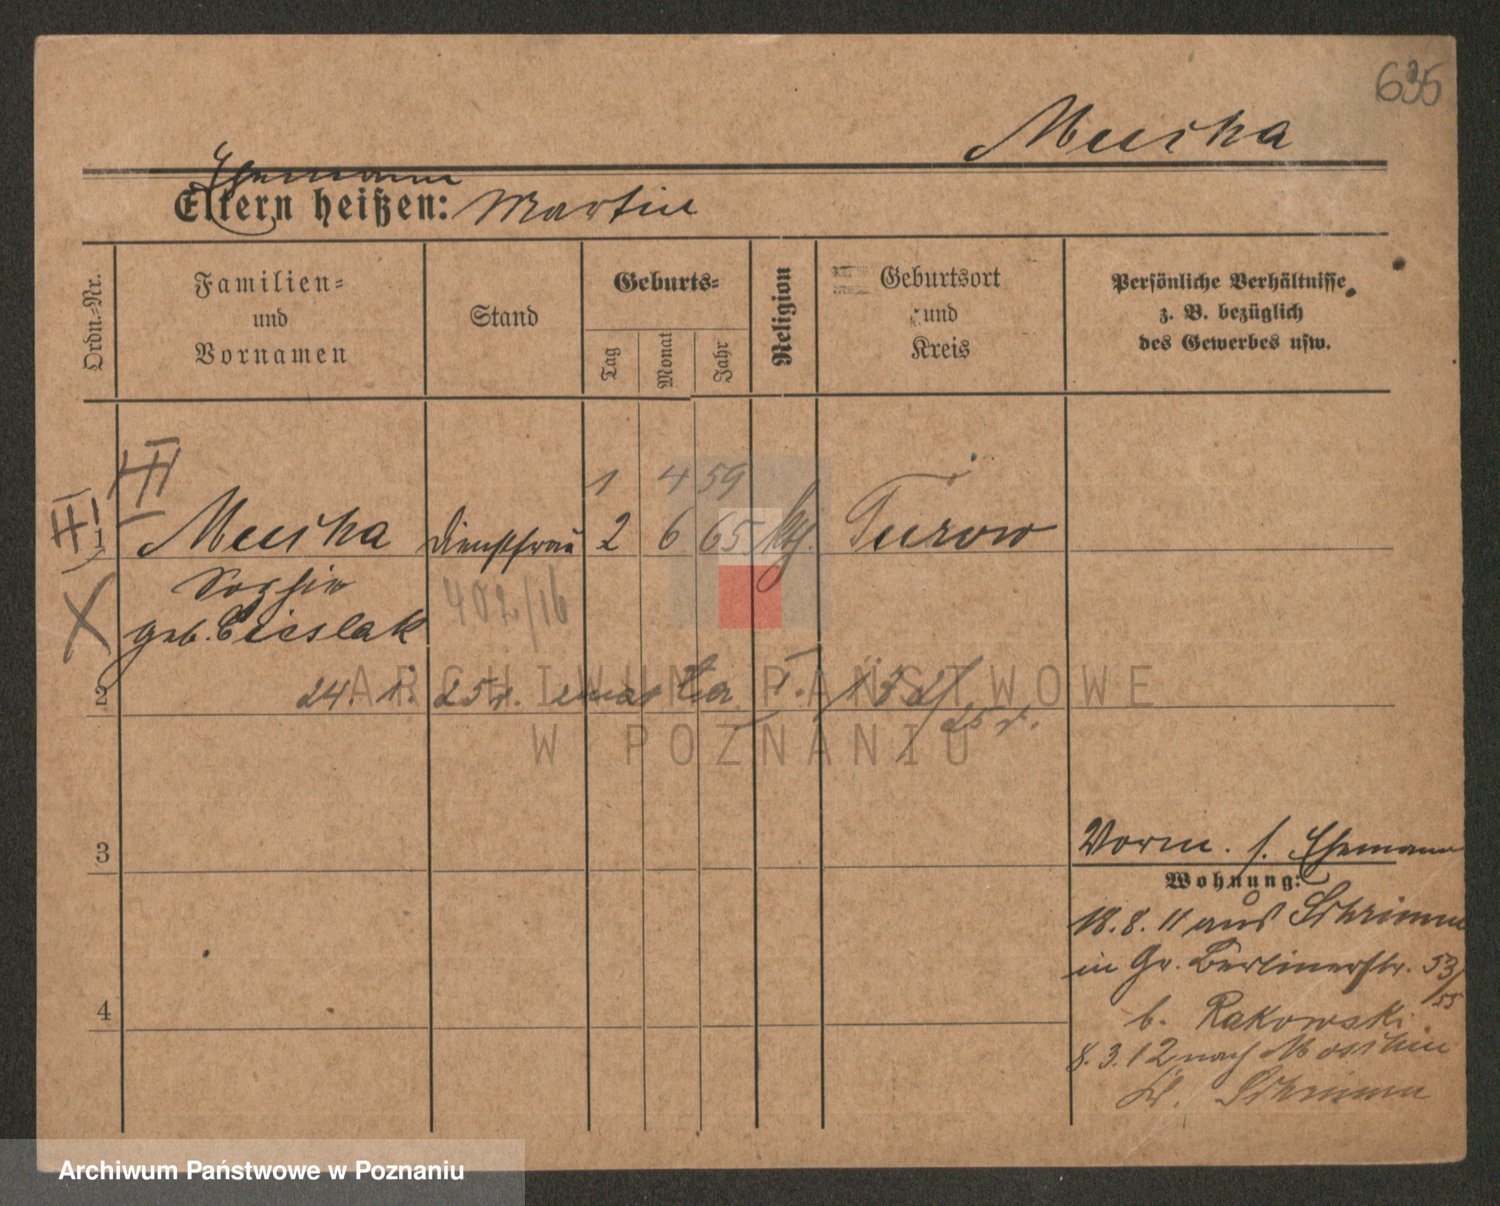 635
Muska
Ehemann
Eltern heißen: Martin
Ordn.-Nr.
Familien-
und
Vornamen
Stand
Geburts-
Tag
Monat
Jahr
Religion
Geburtsort
und
Kreis
Persönliche Verhältnisse
z. B. bezüglich
des Gewerbes usw.
1 4 59
1 Muska Dienstfrau 2 6 65 kth. Turow
Sophie
geb. Cieslak
402/16
2 24. 1. 25 r. zmarła
25 r.
3
4
Vorm. s. Ehemann
Wohnung:
18.8.11 aus Schrimm
in Gr. Berlinerstr. 53/55
b. Rakowski
8.3.12 nach Moschin
Kr. Schrimm
ARCHIWUM PAŃSTWOWE
W POZNANIU
Archiwum Państwowe w Poznaniu